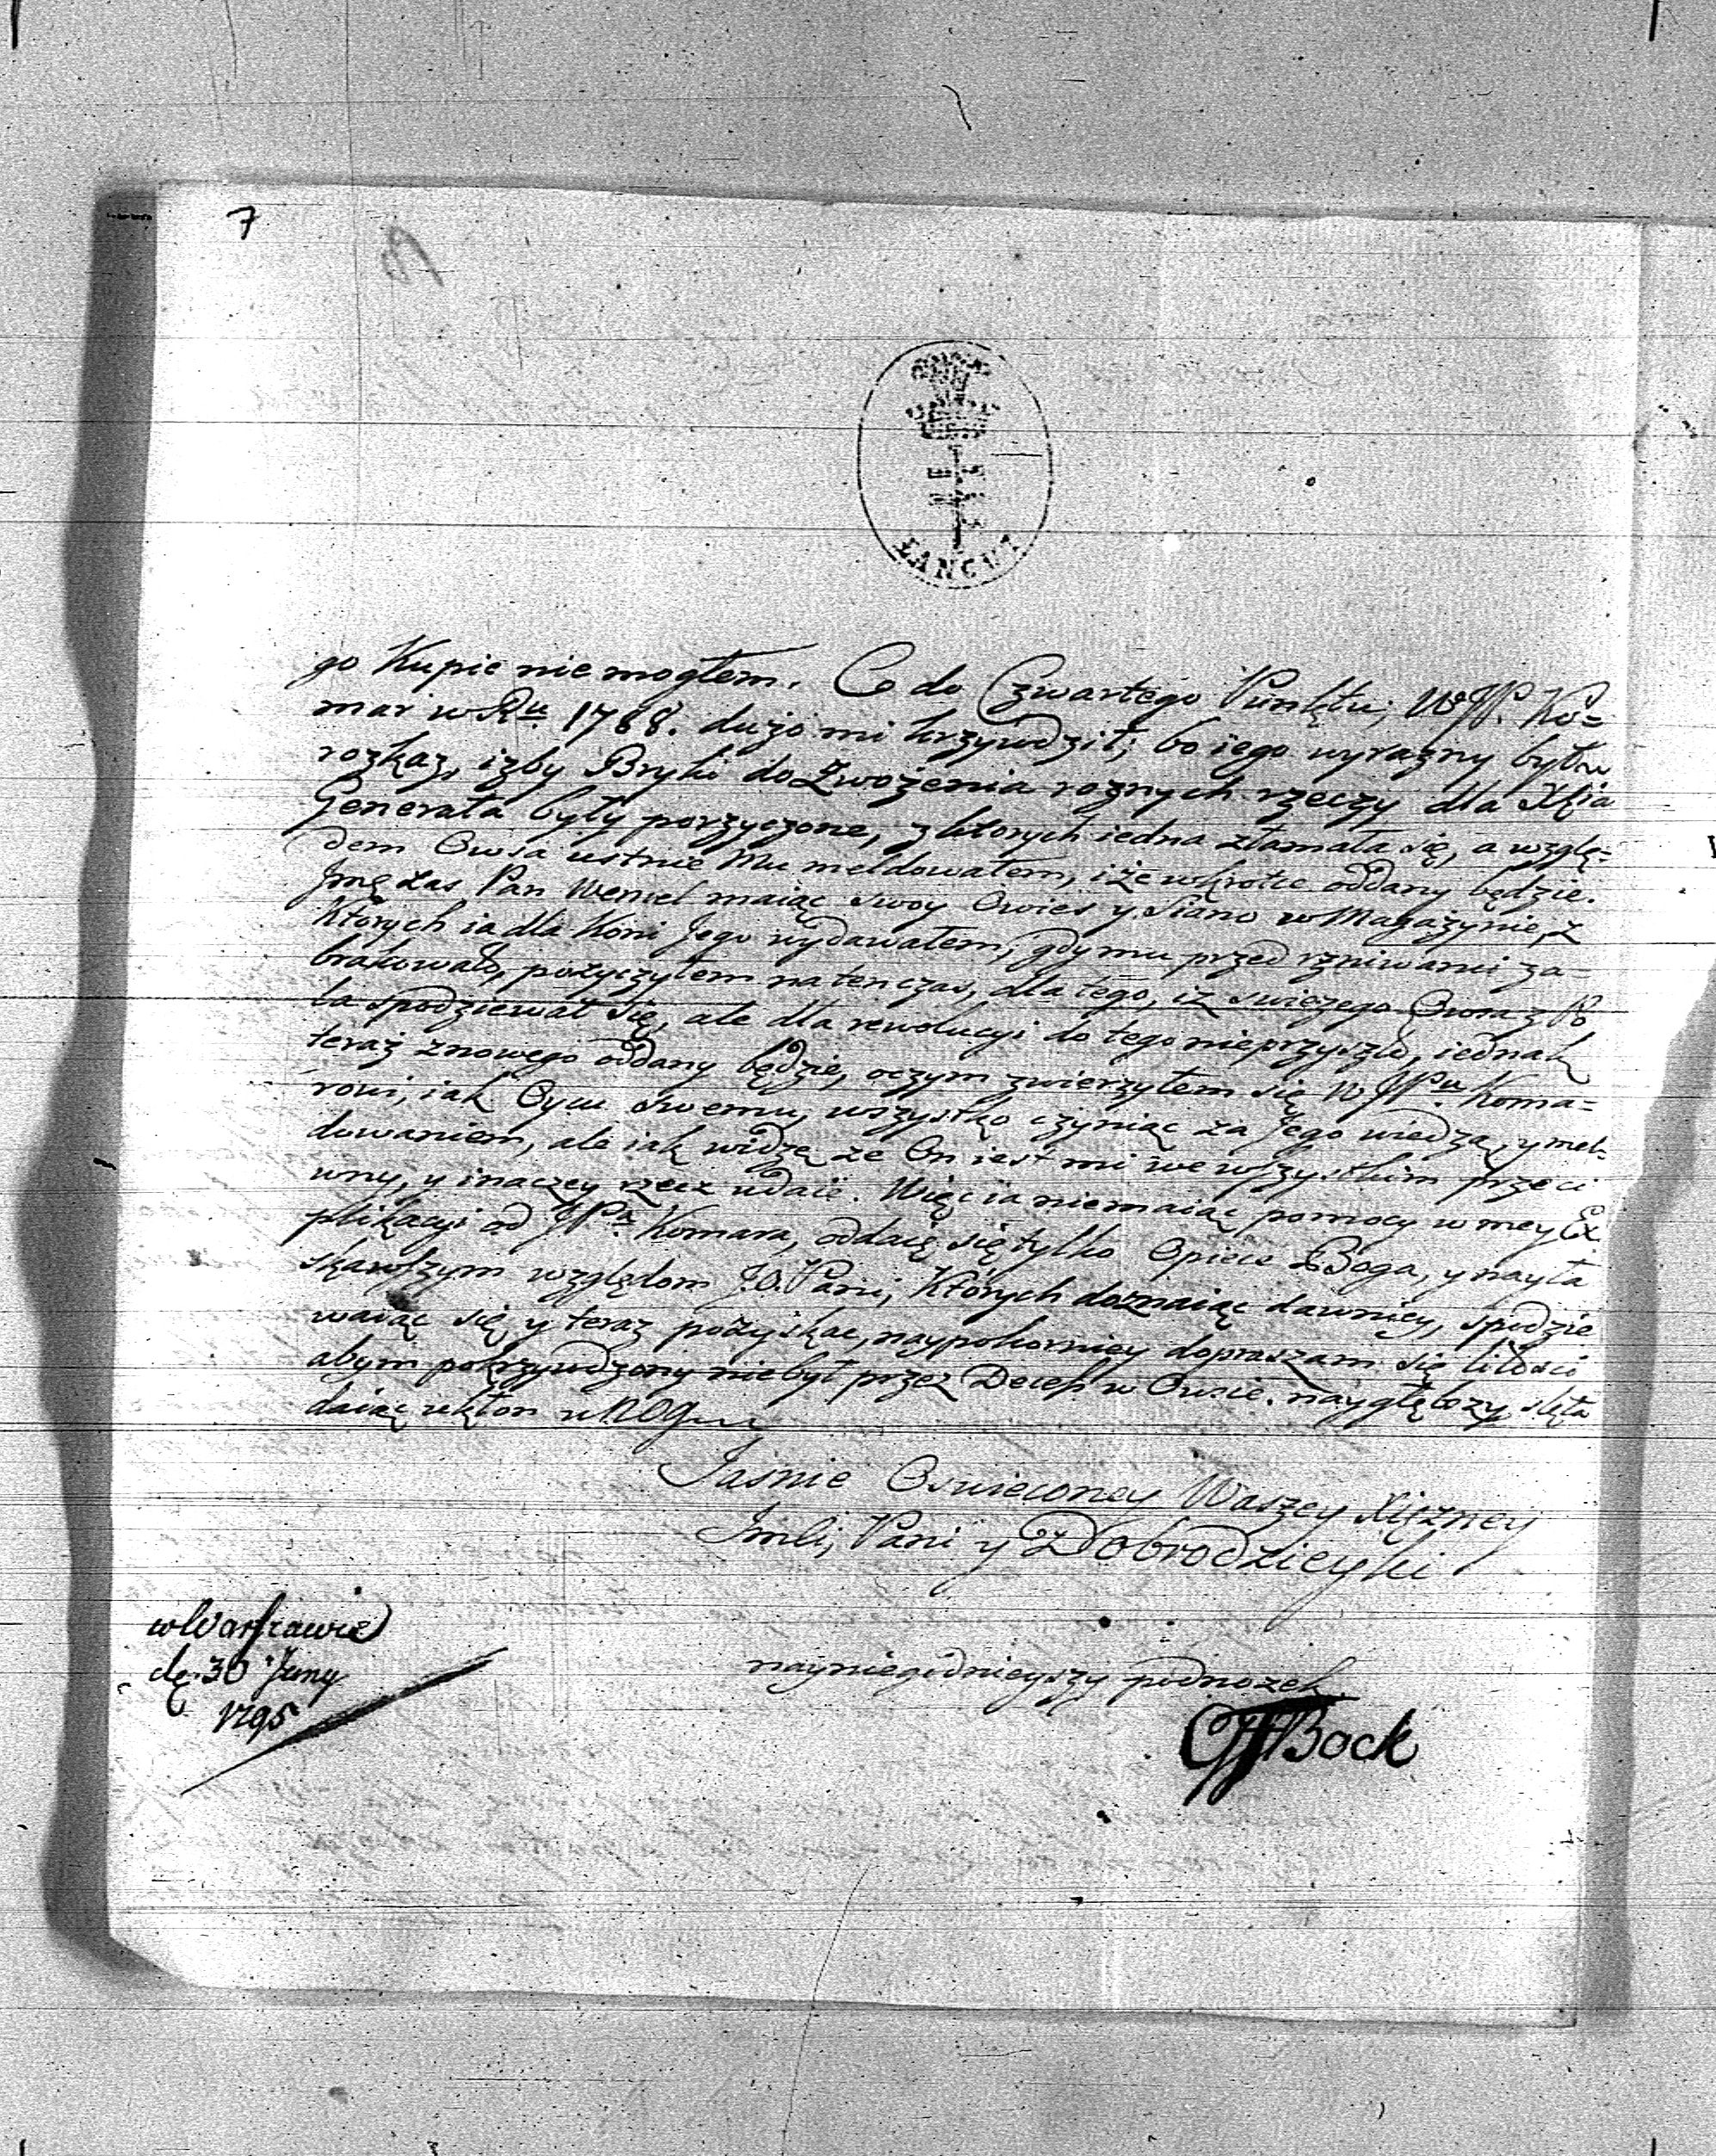 7
ŁANCUT
go Kupic nie mogłem. Co do Czwartego Punktu; W JP. Ko=
mar w Ru 1788. dużo mi krzywdził; bo iego wyrazny był
rozkaz, izby Bryki do Zwożenia roznych rzeczy dla Xcia
Generała były porzyczone, z ktorych iedna złamała się, a wzglę=
dem Owsa ustnie Mu meldowałem, iże wkrotce oddany będzie.
Jmć zas Pan Wemel maiąc swoy Owies y Siano w Magazynie, z
Których ia dla Koni Jego wydawałem, gdy mu przed rzniwami za=
brakowało, pożyczyłem na ten czas, dla tego, iż swieżego Owsa z
ła spodziewał się, ale dla rewolucyi do tego nieprzyszło, iednak
teraz z nowego oddany będzie, o czym zwierzyłem się W JPu Koma=
rowi, iak Oycu swemu, wszystko czyniąc za Jego wiedzą, y mel=
dowaniem, ale iak widzę że On iest mi we wszystkim przeci
wny, y inaczey rzecz udaie. Więc ia niemaiąc pomocy w mey Ex
plikacyi od JPa Komara, oddaię się tylko Opiece Boga, y nayła
skawszym względom J.O. Pani, Których doznaiąc dawniey, spodzie
waiąc się y teraz pozyskac, naypokorniey dopraszam się litości
abym pokrzywdzony niebył przez Decess w Owsie. naygłębszy skła
daiąc ukłon u nog
Jaśnie Oswieconey Waszey Xiężney
Imći, Pani y Dobrodzieyki
w Warszawie
d. 30 Juny
1795
nayniegodnieyszy podnożek
Bock